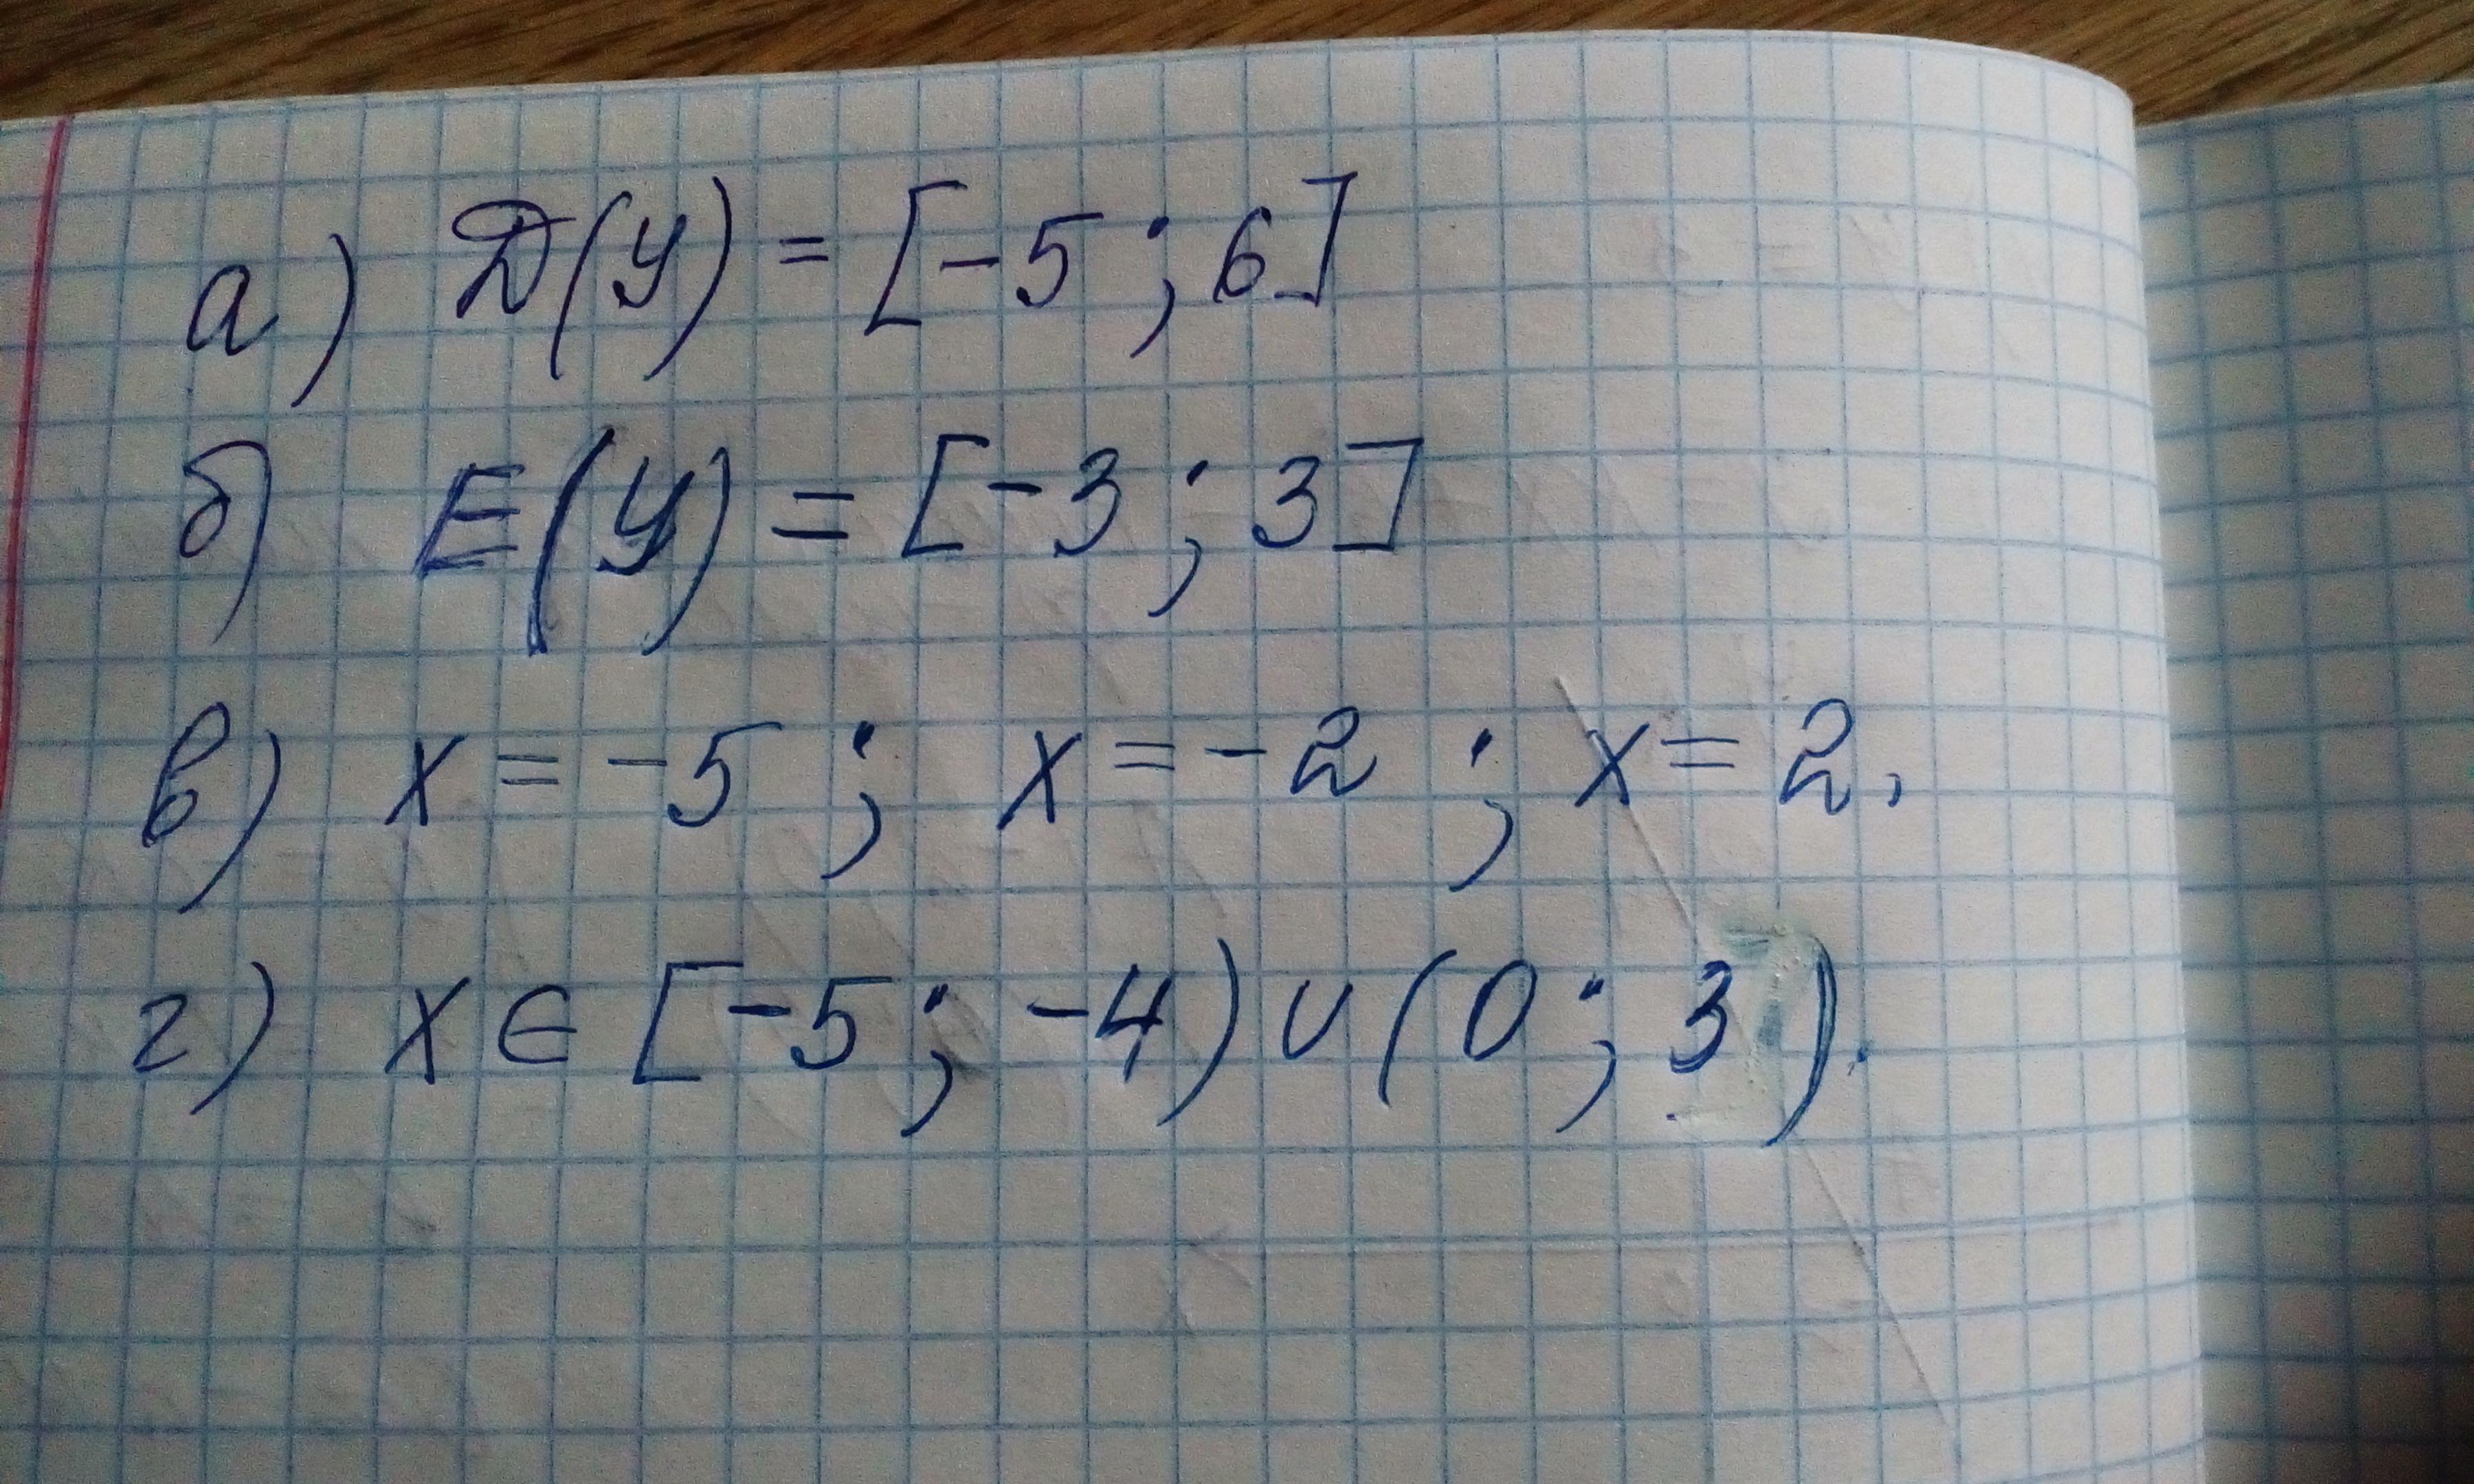 а) D(y) = [-5; 6]
б) E(y) = [-3; 3]
в) x = -5; x = -2; x = 2,
г) x ∈ [-5; -4) ∪ (0; 3).